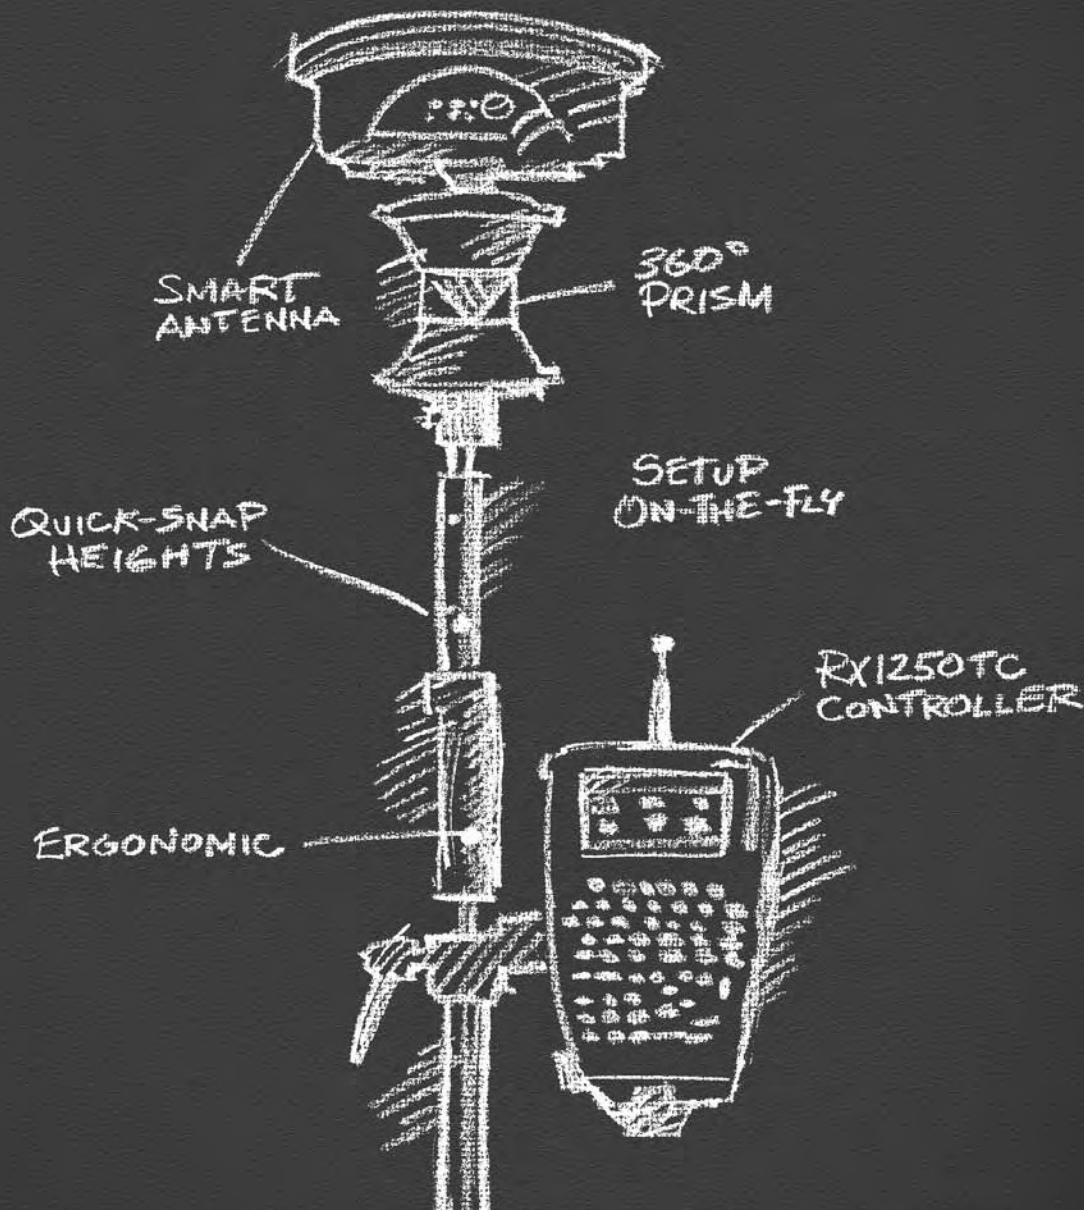 SMART
ANTENNA
360°
PRISM
SETUP
ON-THE-FLY
QUICK-SNAP
HEIGHTS
RX1250TC
CONTROLLER
ERGONOMIC